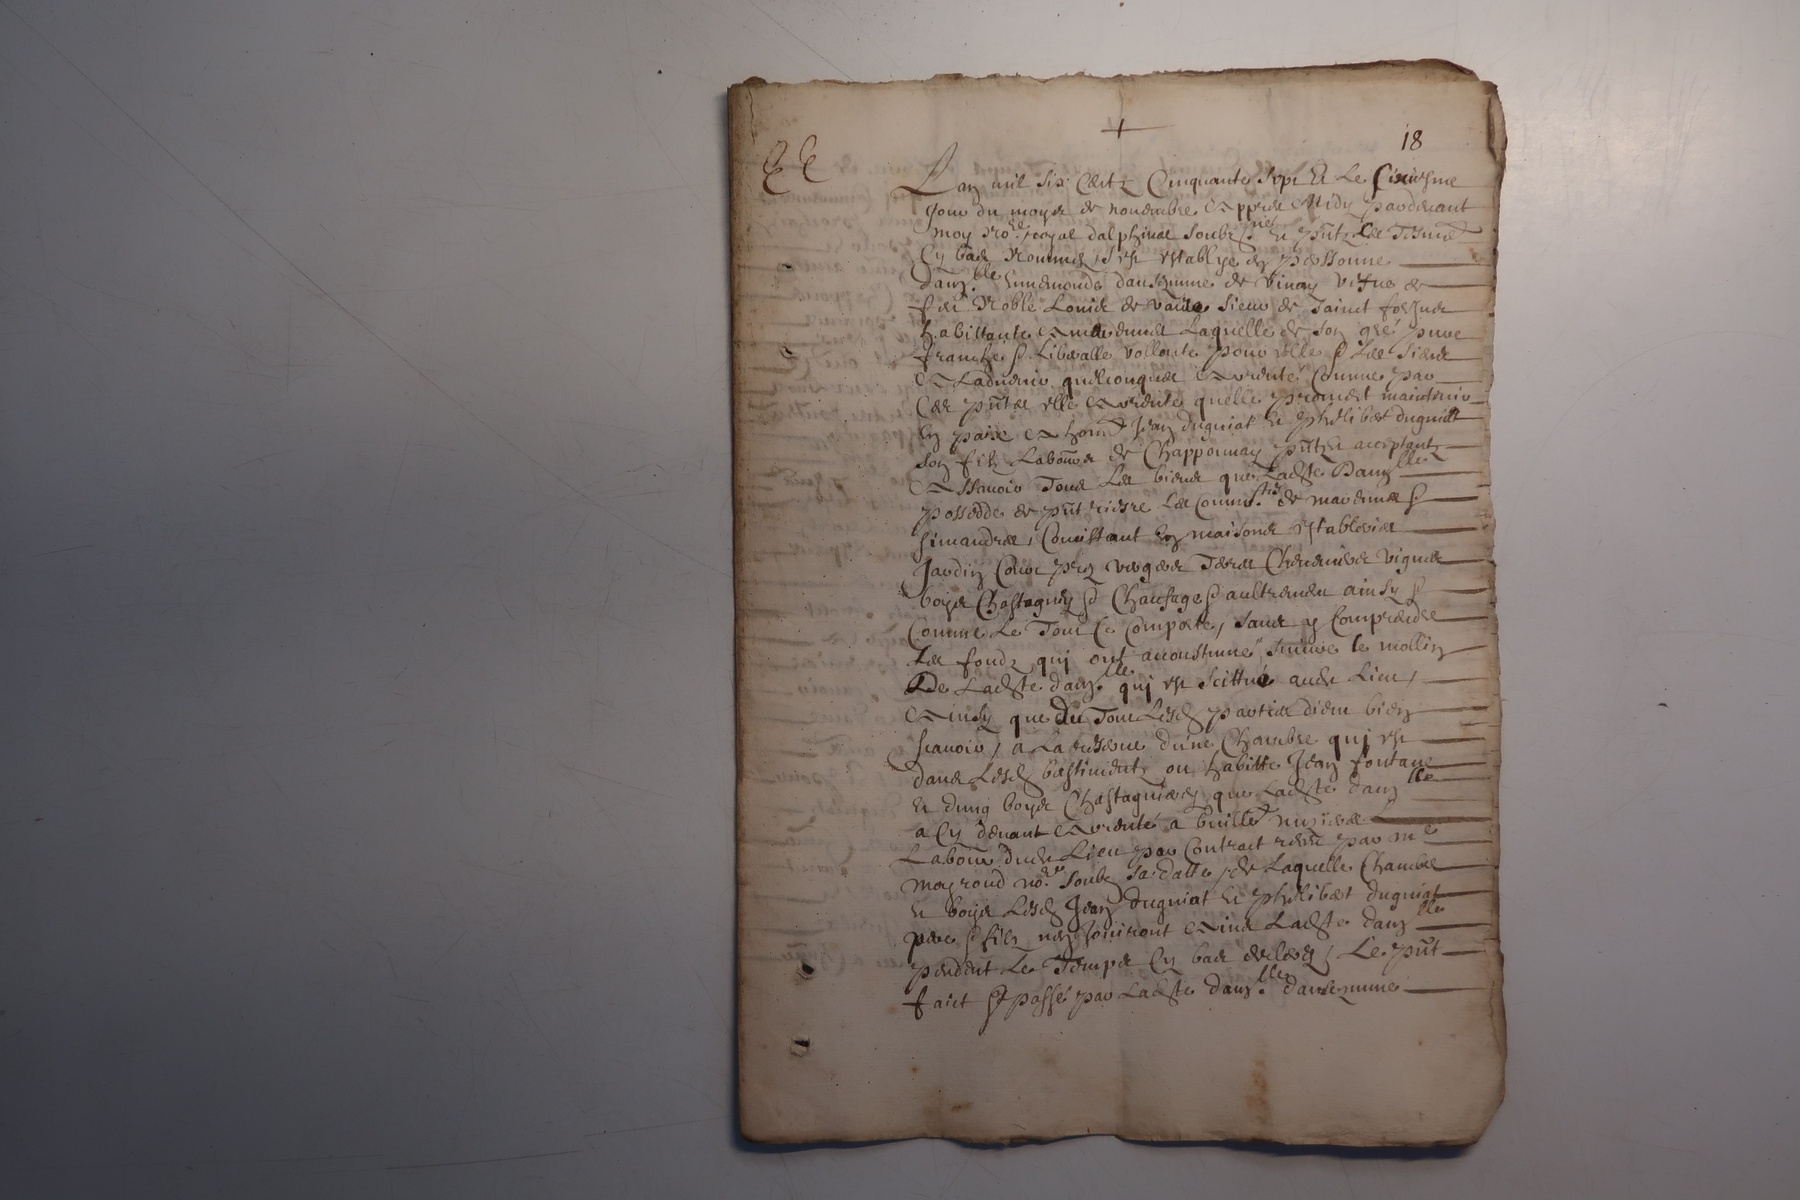 18
Lan mil six centz Cinquante sept Et Le sixiesme
Jour du moys de novembre appres Midy pardevant
moy no.re royal dalphinal soubz.né et pntz Les tesmo
Cy bas nommes, s est establye en personne
dam.lle dansezune de Vinay vefve de
feu Noble Louis de sieur de sainct
habittante a Laquelle de son gré pure
franche et Liberalle vollonté pour elle et Les siens
a Ladvenir quelconques a arrenté Comme par
Ces pntes elle arrente quelle promest maintenir
En paix a hon. Jean duguiat et phelibert duguiat
son filz Laboure. de Chapponnay pnt et acceptant
assavoir Tous Les biens que Ladte Dam.lle
possedde de pnt riesre Les Commu.tés de marennes et
simandres, Consistant en maisons Estableries
Jardin Cour prez vergers Terres Cheneviere vignes
boys Chastagniers et Chaufage et aultrement ainsy et
Comme Le Tout Ce Comporte, sans y Comprendre
Les fondz qui ont accoustumé suivre le mollin
De Ladte dam.lle qui est scittué audt Lieu,
Ainsy que du Tout Lesd parties dient bien
scavoir, a La reserve dune Chambre qui est
dans Lesd bastimentz ou habitte Jean fontane
et dung boys Chastagniers que Ladte dam.lle
a Cy devant arrenté a
Laboure. dudt Lieu par Contract receu par me
no.re soubz sa datte, de Laquelle Chambre
et boys Lesd Jean duguiat et phelibert duguiat
pere et filz nen Jouiront ains Ladte dam.lle
pendant Le Temps Cy bas declaré, Le pnt
faict et passé par Ladte dam.lle dansezune